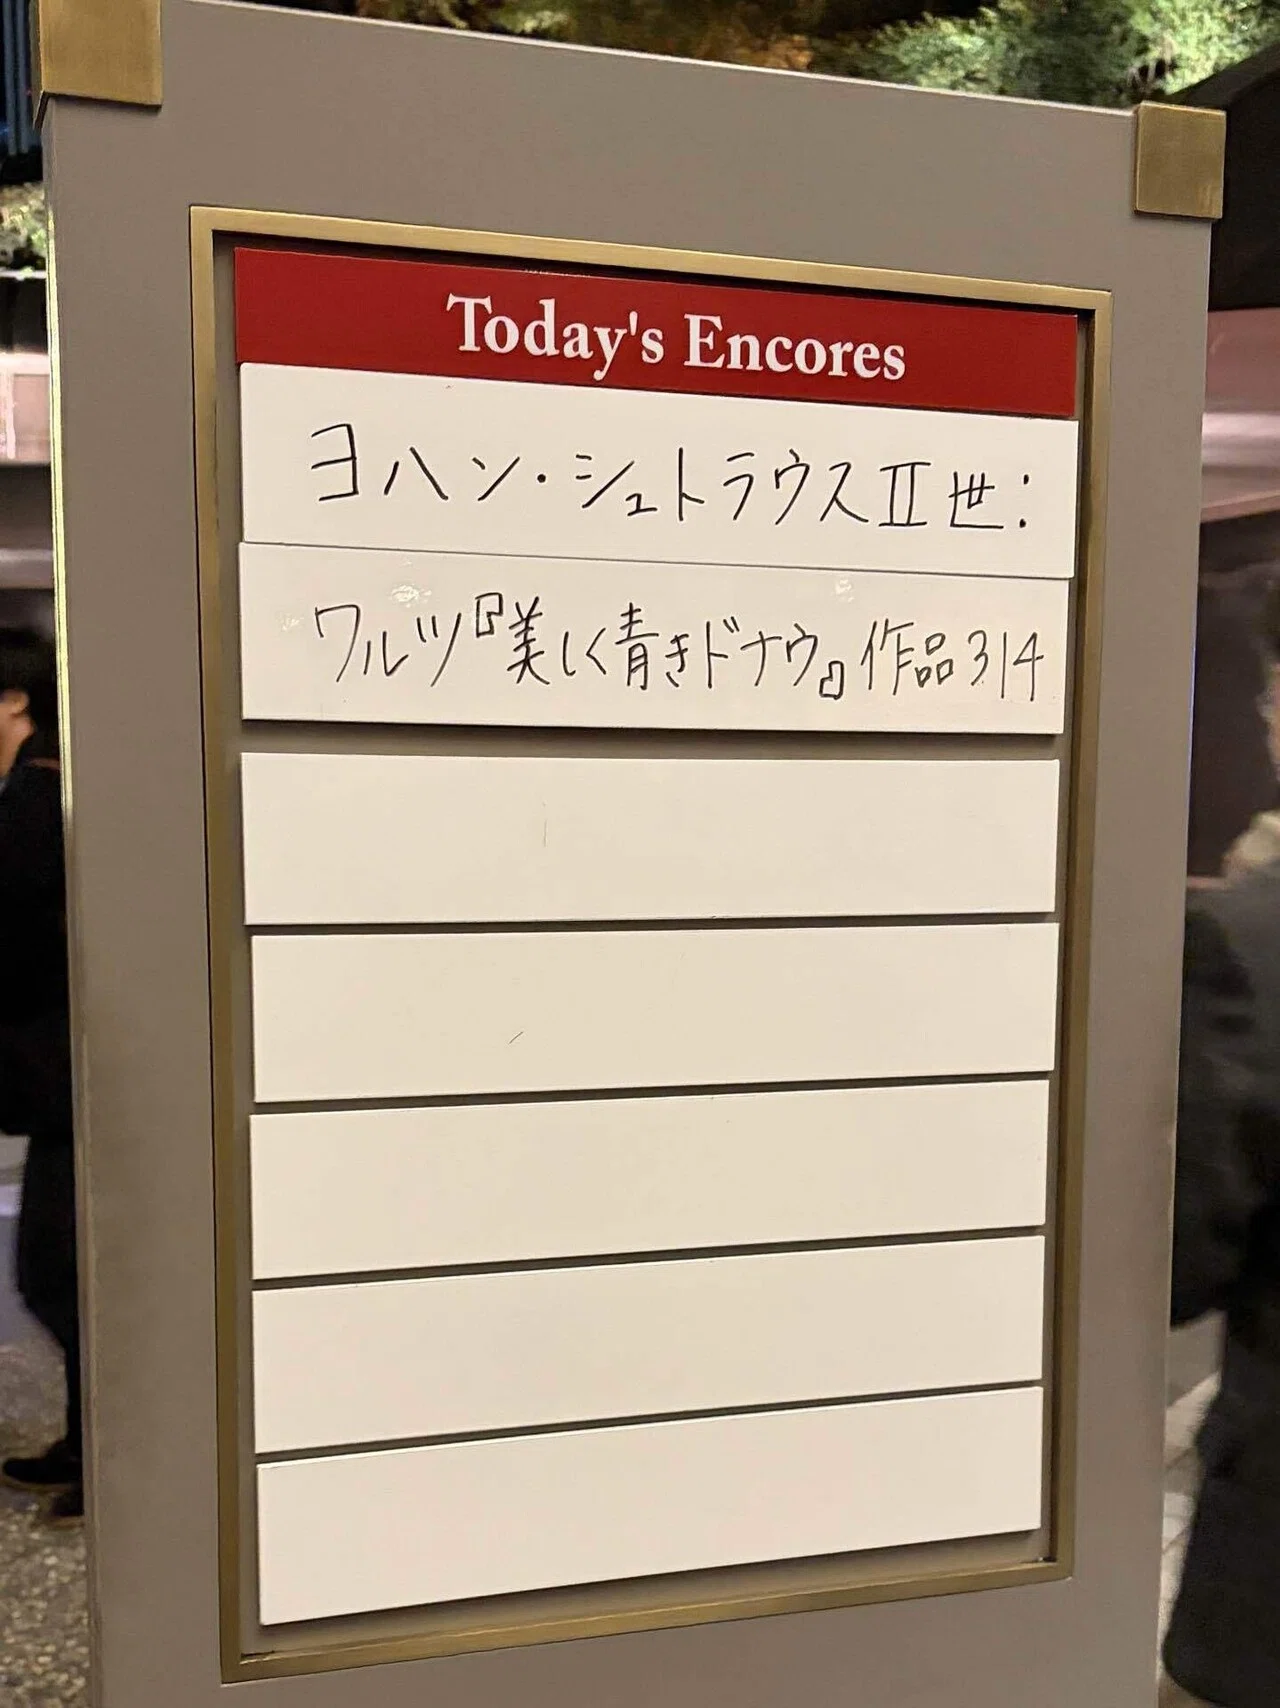 Today's Encores
ヨハン・シュトラウスⅡ世:
ワルツ『美しく青きドナウ』作品314